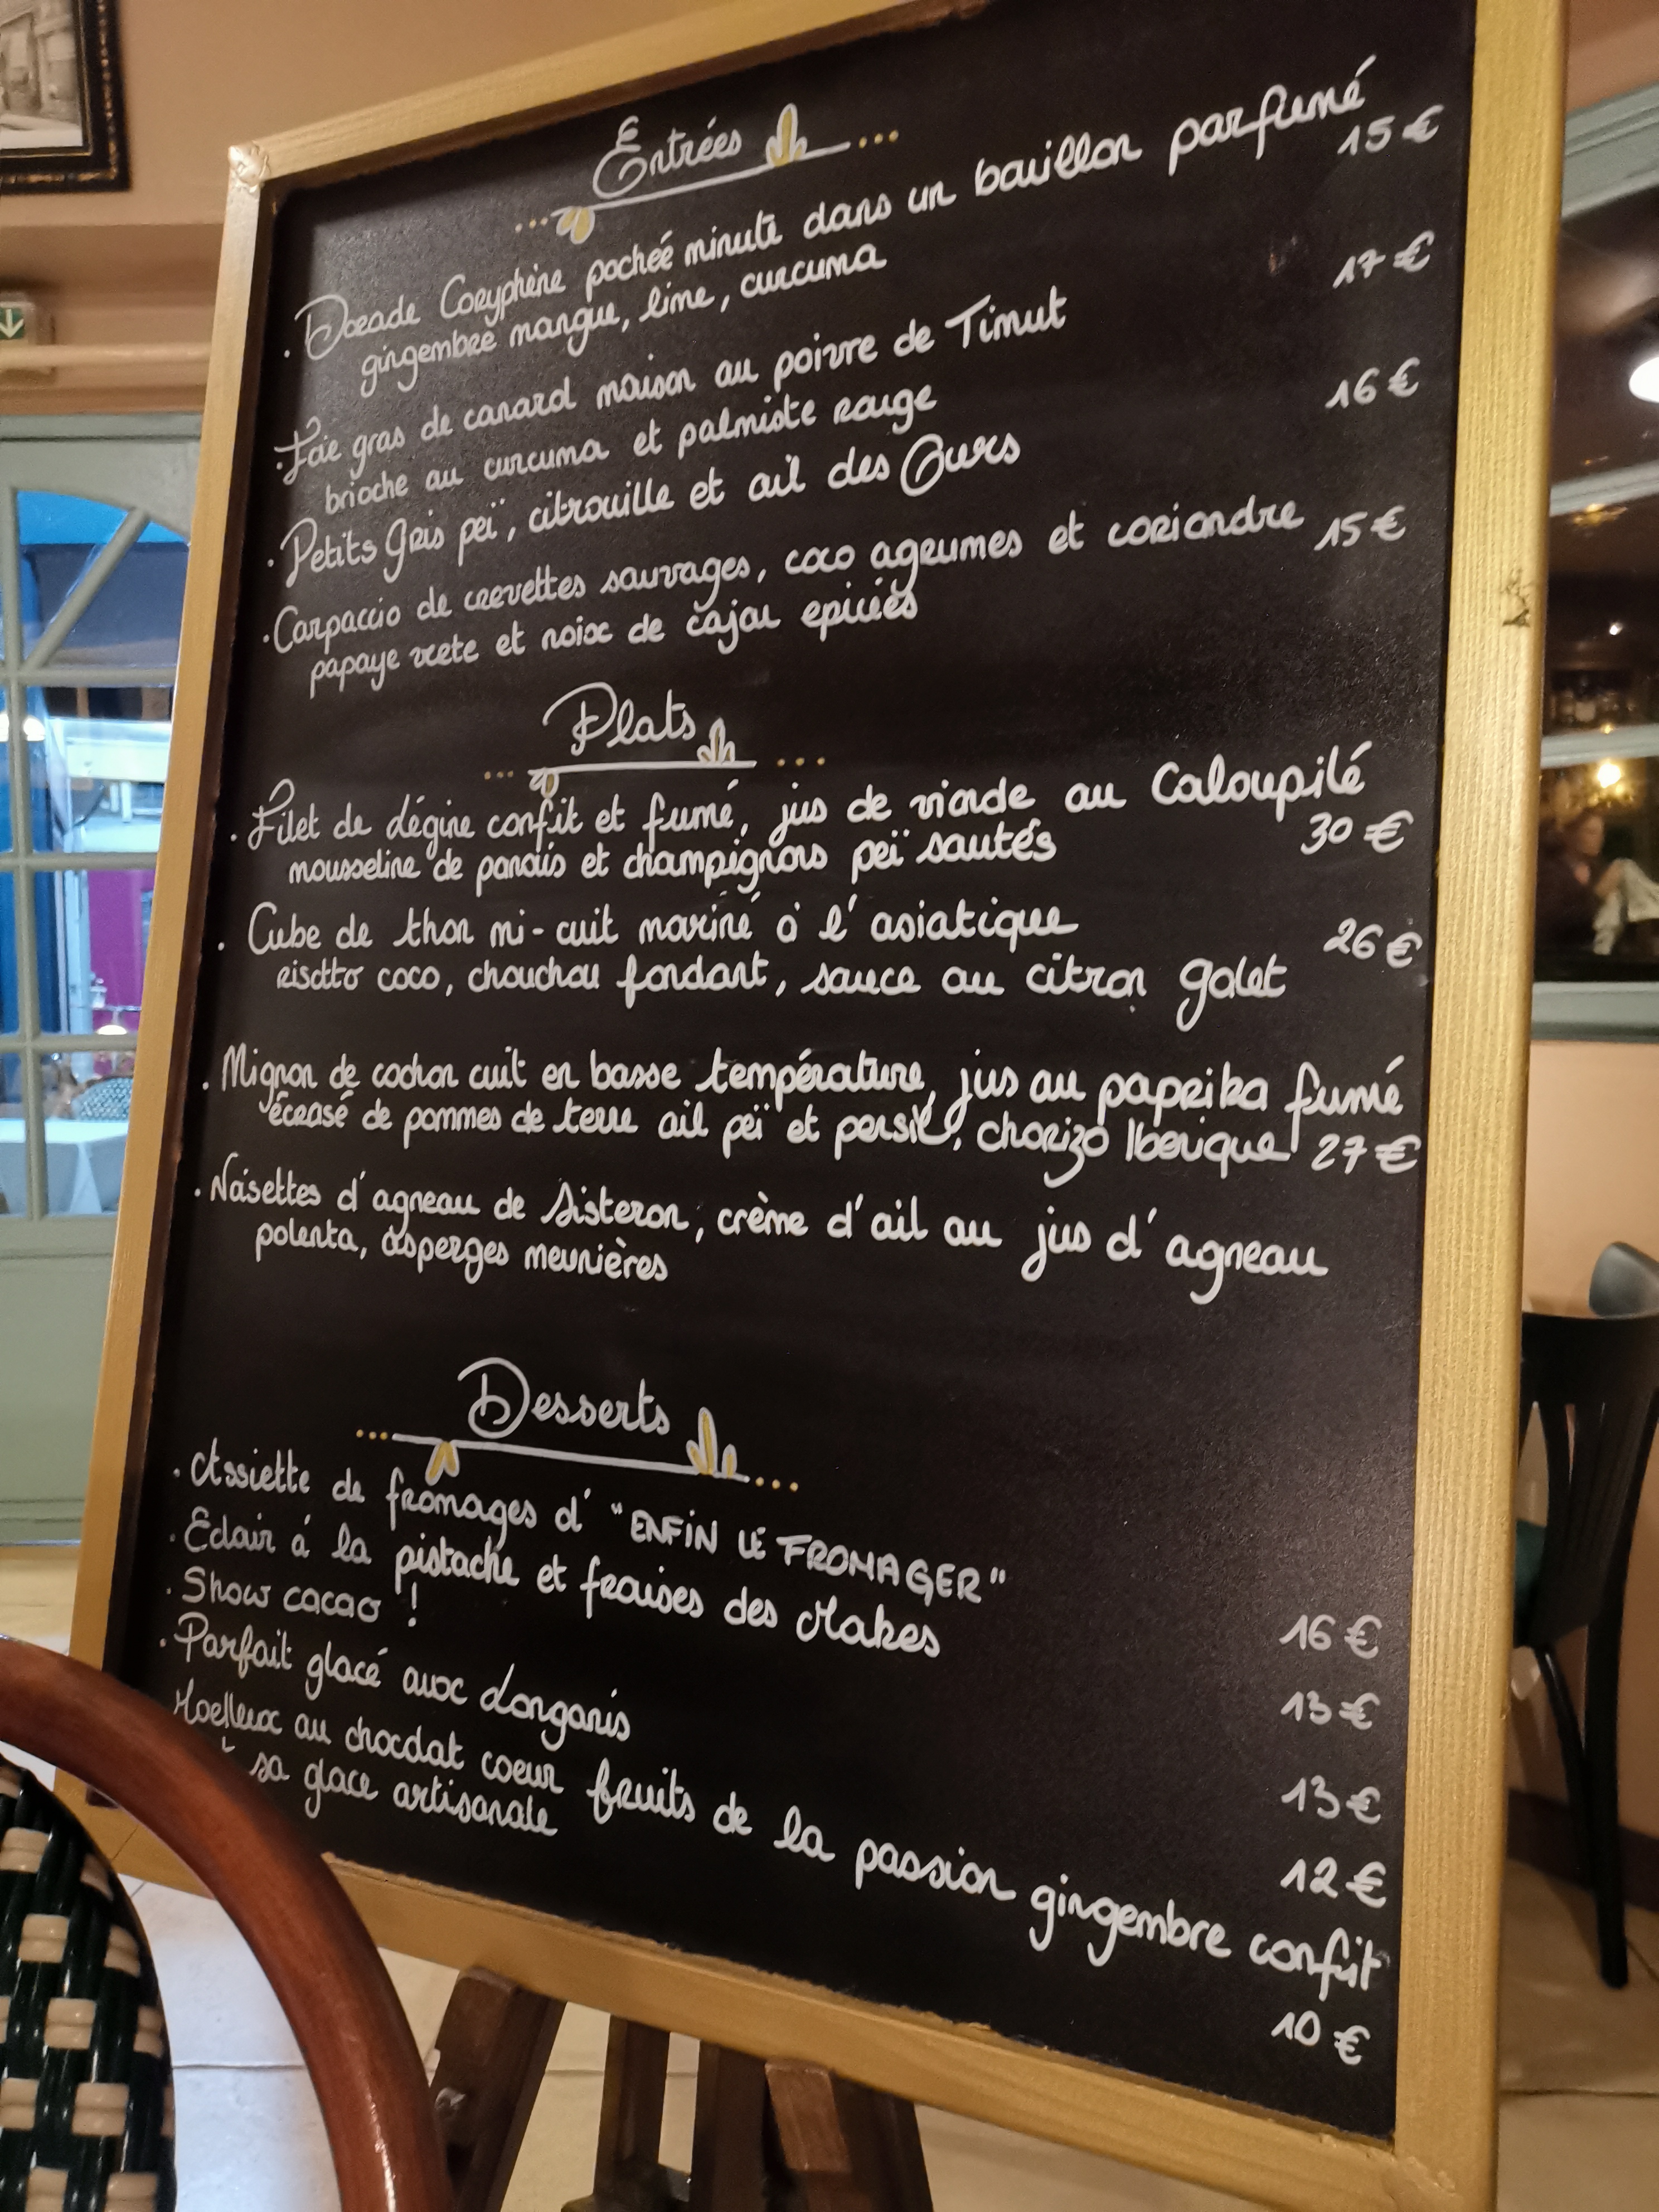 Entrées
. Dorade Coryphène pochée minute dans un bouillon parfumé
gingembre mangue, lime, curcuma 15 €
. Foie gras de canard maison au poivre de Timut 17 €
brioche au curcuma et palmiste rouge
. Petits Gris peï, citrouille et ail des Ours 16 €
. Carpaccio de crevettes sauvages, coco agrumes et coriandre 15 €
papaye verte et noix de cajou epicées
Plats
. Filet de légine confit et fumé, jus de viande au Caloupilé
mousseline de panais et champignons peï sautés 30 €
. Cube de thon mi-cuit mariné à l'asiatique 26 €
risotto coco, chouchou fondant, sauce au citron galet
. Mignon de cochon cuit en basse température, jus au paprika fumé
écrasé de pommes de terre ail peï et persil, chorizo Iberique 27 €
. Noisettes d'agneau de Sisteron, crème d'ail au jus d'agneau
polenta, asperges meunières
Desserts
. Assiette de fromages d' "ENFIN LE FROMAGER" 16 €
. Eclair à la pistache et fraises des Makes 13 €
. Show cacao ! 13 €
. Parfait glacé aux Longanis 12 €
Moelleux au chocolat coeur fruits de la passion gingembre confit
sa glace artisanale 10 €